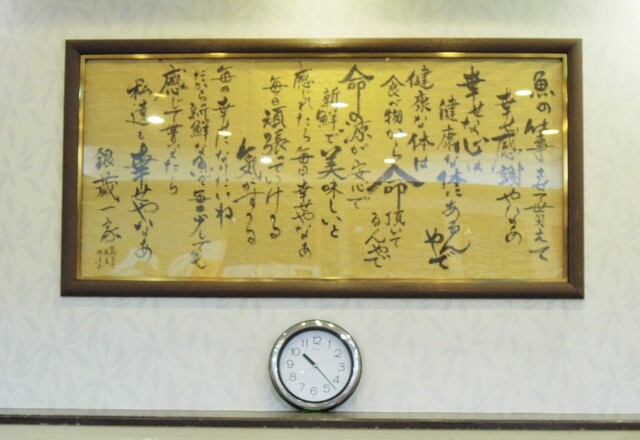 魚の仕事させて貰えて
幸せ感謝やなあ
幸せな心は
健康な体にあるんで
やで
健康な体は
食べ物から
命頂いて
るんやで
命の源が安心で
新鮮で美味しいと
感じれたら毎日幸せやなあ
毎日頑張っていける
気がする
毎日幸せになりたいね
だから新鮮な魚毎日少しでも
感じて貰えたら
私達も幸せやなあ
銀蔵一家
12
1
2
3
4
5
6
7
8
9
10
11